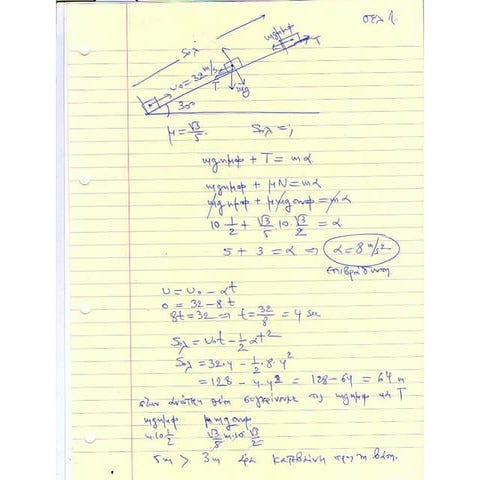 σελ 1.
Sολ
mgημφ
T
υ₀=32 m/s
T
mg
30°
μ = √3/5. Sολ = ;
mgημφ + T = mα
mgημφ + μN = mα
mgημφ + μmgσυνφ = mα
10 1/2 + √3/5 10 √3/2 = α
5 + 3 = α ⇒ α = 8 m/s²
επιβράδυνση
υ = υ₀ - αt
0 = 32 - 8t
8t = 32 ⇒ t = 32/8 = 4 sec
Sολ = υ₀t - 1/2 αt²
Sολ = 32·4 - 1/2·8·4²
= 128 - 4·4² = 128 - 64 = 64 m
στην ανώτατη θέση συγκρίνουμε τις mgημφ και T
mgημφ μmgσυνφ
m·10 1/2 √3/5 m·10 √3/2
5m > 3m άρα κατεβαίνει προς τη βάση.